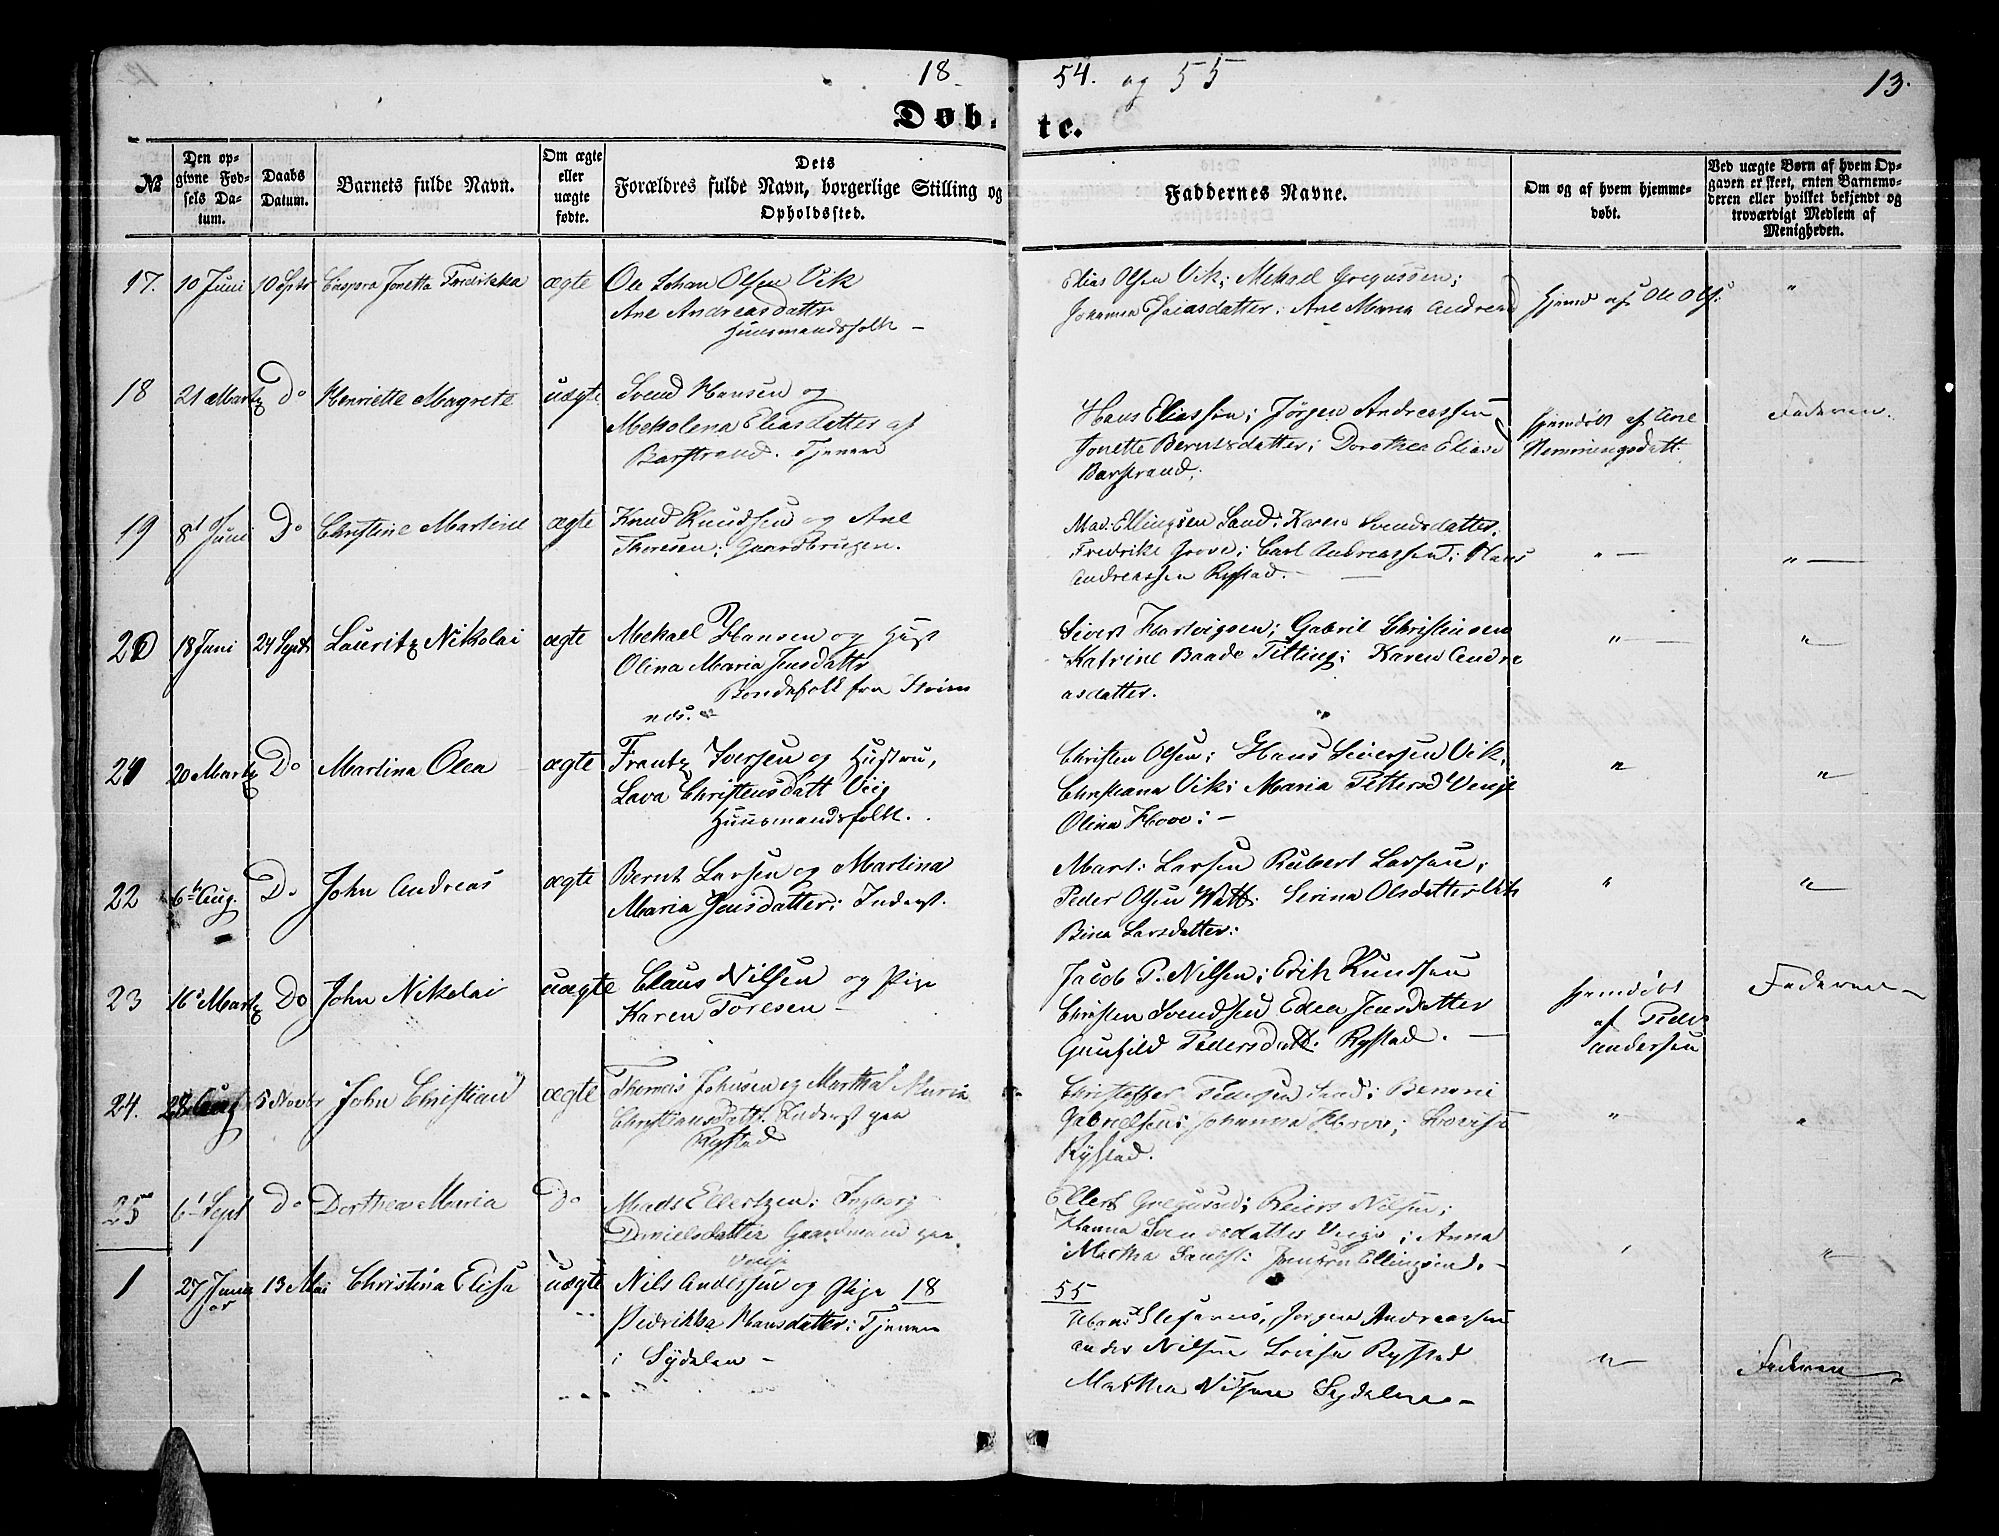 18 54. og 55 13.
Døbte.
No
Den opgivne Fødsels Datum.
Daabs Datum.
Barnets fulde Navn.
Om ægte eller uægte fødte.
Dets Forældres fulde Navn, borgerlige Stilling og Opholdssted.
Faddernes Navne.
Om og af hvem hjemmedøbt.
Ved uægte Børn af hvem Opgaven er skeet, enten Barnemoderen eller hvilket bekjendt og troværdigt Medlem af Menigheden.
17. 10 Juni 10 Septr Caspara Jonetta Fredrikka ægte
Ole Johan Olsen Vik
Ane Andreasdattr
Huusmandsfolk –
Elias Olsen Vik; Mekael Gregussen;
Johanna Eliasdatter; Ane Maria Andreasd
Hjemd af Ole Ols. "
18 21 Martz Do Henriette Magrete uægte
Svend Hansen og
Mekolena Eliasdatter af
Barstrand. Tjenere
Hans Eliassen; Jørgen Andreassen
Jonette Berntsdatter; Dorothea Eliasd
Barstrand;
Hjemdøbt af Ane
Hemmingsdatt.
Faderen.
19 8d Juni Do Christine Martine ægte
Knud Knudsen og Ane
Thoresen; Gaardbruger.
Mad: Ellingsen Sand; Karen Svendsdatter.
Fredrike Grove; Carl Andreassen; Hans
Andreassen Rystad. –
" – " –
20 18 Juni 24 Septr Lauritz Nikolai ægte
Mekael Hansen og Hust
Olina Maria Jensdattr
Bondefolk fra
Sivert Hartvigsen; Gabril Christensen
Katrine Baade Petting; Karen Andre
asdatter.
" – "
21 20 Martz Do Martina Olea ægte
Frantz Iversen og Hustru,
Lava Christensdatt Veig
Huusmandsfolk.
Christen Olsen; Hans Sivertsen Vik,
Christiana Vik; Maria Pettersd Venje
Olina Hove: –
" "
22 6te Aug. Do John Andreas ægte
Bernt Larsen og Martina
Maria Jensdatter; Inderst.
Mart: Larsen Rubert Larsen;
Peder Olsen Serina Olsdatter
Bina Larsdatter:
" "
23 16 Martz Do John Nikolai uægte
Claus Nilsen og Pige
Karen Toresen –
Jacob P. Nilsen; Erik Knudsen
Christen Svendsen Edea Jensdatter
Gunhild Pedersdatt. Rystad. –
Hjemdøbt
af Peder
Andersen
Faderen –
24. 28 Aug 5 Novbr John Christian ægte
Thomas Johnsen og Martha Maria
Christiansdatt. Inderst paa
Rystad
Christoffer Pedersen Sand; Benoni
Gabrielsen; Johanna Hove; Lovisa
Rystad.
" "
25 6t Sept Do Dorthea Maria Do
Mads Ellertsen; Ingborg
Danielsdatter Gaardmand paa
Venje
Ellert Gregusen; Reiert Nilsen;
Hanna Svendsdatter Veigo; Anna
Martha Sand; Jomfru Ellingsend. –
"
1 27 Januar 13 Mai Christina Elisa uægte
Nils Andersen og Pige 18
Fredrikka Hansdatter; Tjenere
i Sydalen –
55
Hans Stefanus, Jørgen Andreassen
Ander Nilsen Lovisa Rystad
Martha Nilsen Sydalen –
" – Faderen